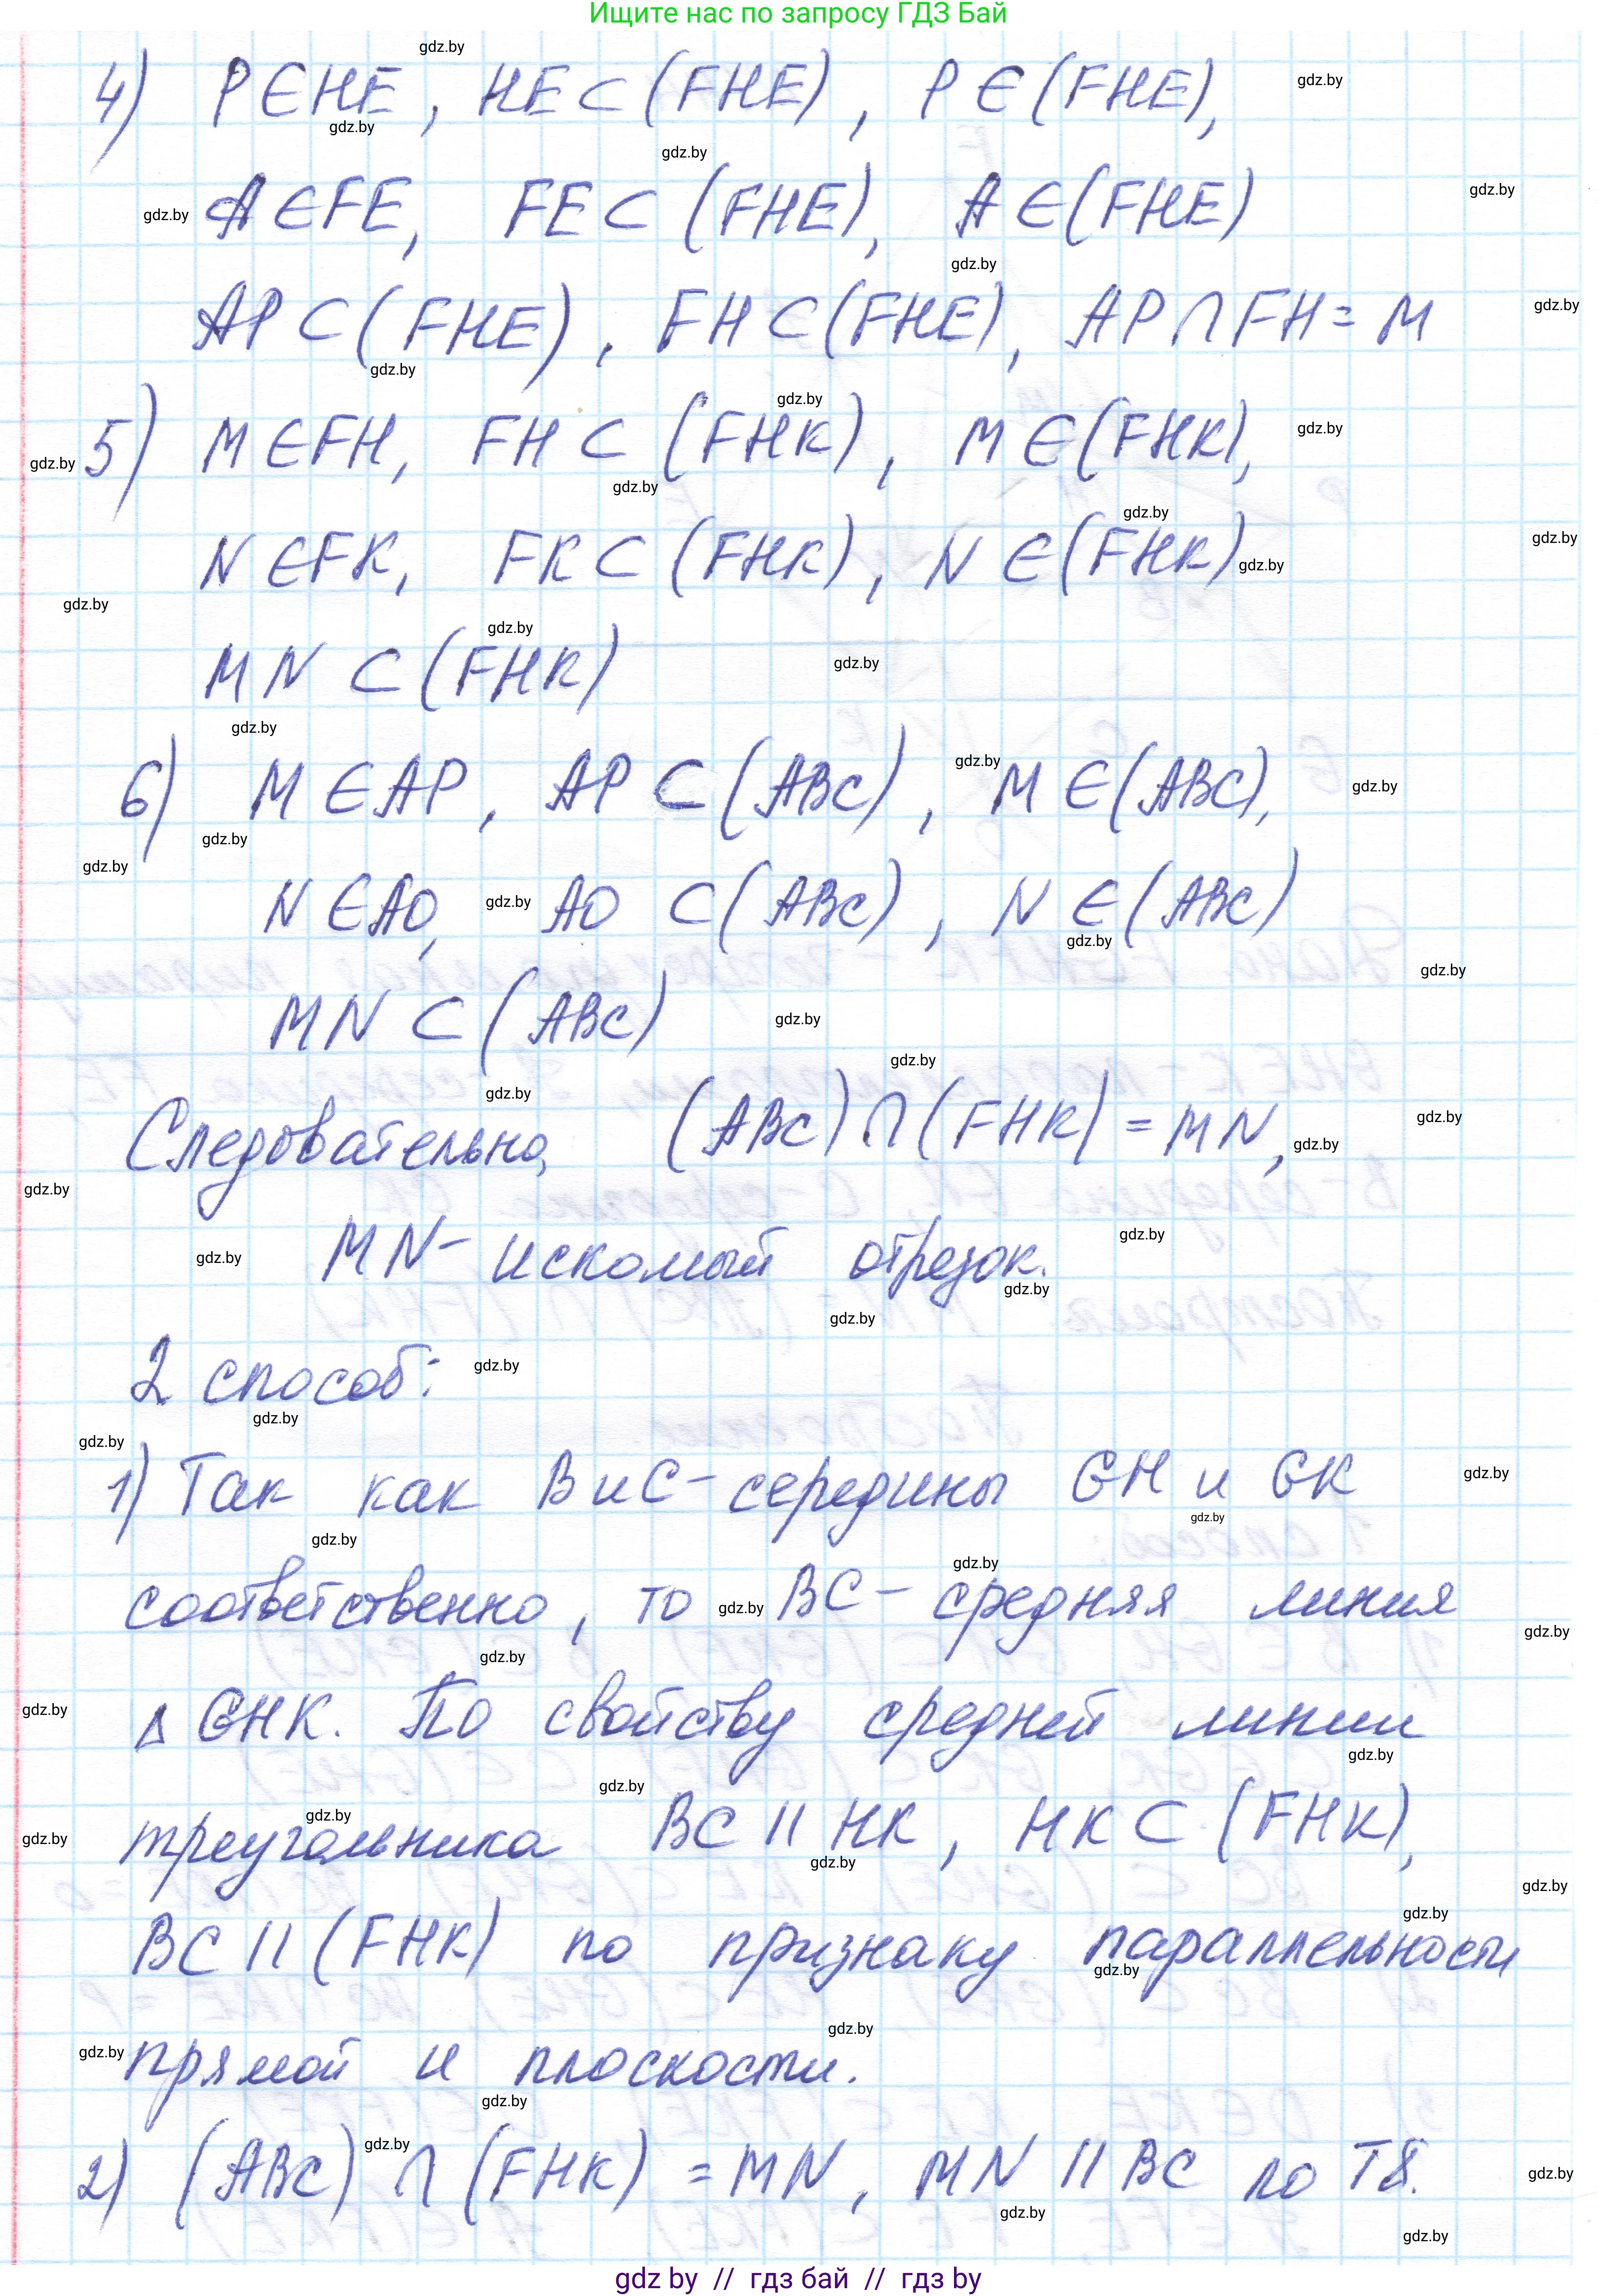 Ищите нас по запросу ГДЗ Бай
4) P∈HE, HE⊂(FHE), P∈(FHE),
A∈FE, FE⊂(FHE), A∈(FHE)
AP⊂(FHE), FH⊂(FHE), AP∩FH=M
5) M∈FH, FH⊂(FHK), M∈(FHK),
N∈FK, FK⊂(FHK), N∈(FHK)
MN⊂(FHK)
6) M∈AP, AP⊂(ABC), M∈(ABC),
N∈AO, AO⊂(ABC), N∈(ABC)
MN⊂(ABC)
Следовательно, (ABC)∩(FHK)=MN,
MN- искомый отрезок.
2 способ:
1) Так как B и C- середины GH и GK
соответственно, то BC- средняя линия
Δ GHK. По свойству средней линии
треугольника BC || HK, HK⊂(FHK),
BC || (FHK) по признаку параллельности
прямой и плоскости.
2) (ABC)∩(FHK)=MN, MN || BC по Т8.
gdz by // гдз бай // гдз by